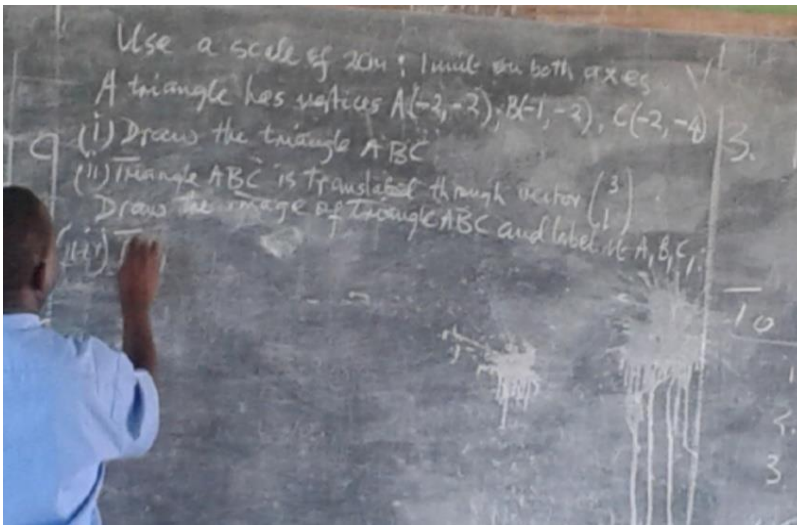 Use a scale of 2cm : 1 unit on both axes
A triangle has vertices A(-2,-2), B(-1,-2), C(-2,-4)
(i) Draw the triangle ABC
(ii) Triangle ABC is translated through vector (3 1)
Draw the image of triangle ABC and label it A₁B₁C₁.
(iii) T
3.
To
3